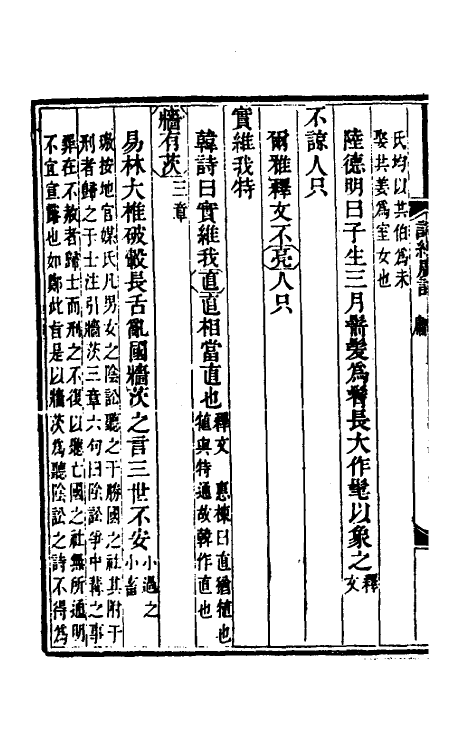 氏均以其伯為未
娶共姜為室女也
陸德明曰子生三月翦髮爲鬌長大作髦以象之釋文
不諒人只
爾雅釋文不亮人只
實維我特
韓詩曰實維我直直相當直也釋文 惠棟曰直猶犆也犆與特通故韓作直也
牆有茨三章
易林大椎破轂長舌亂國牆茨之言三世不安小過之小畜
璥按地官媒氏凡男女之陰訟聽之于勝國之社其附于
刑者歸之于士注引牆茨三章六句曰陰訟爭中冓之事
罪在不赦者歸士而刑之不復以聽亡國之社無所通明
不宜宣露也如鄭此言是以牆茨爲聽陰訟之詩不得爲